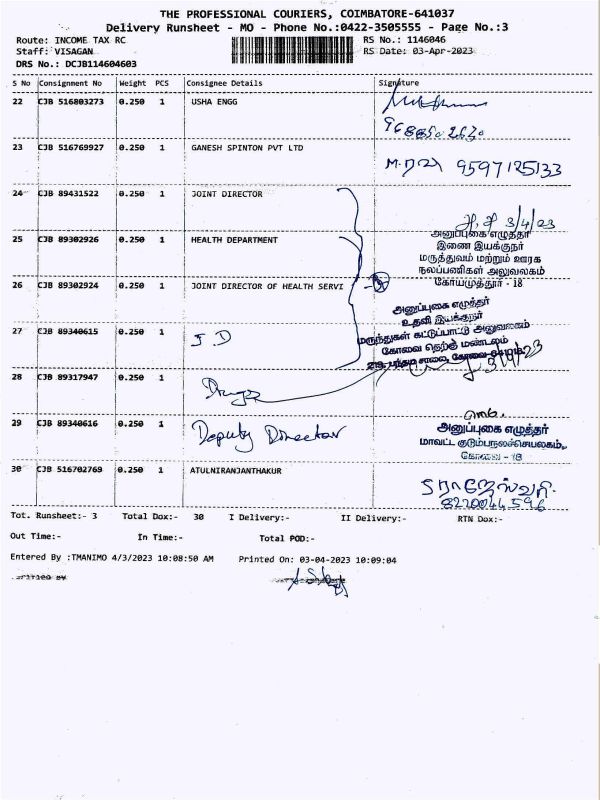 THE PROFESSIONAL COURIERS, COIMBATORE-641037
Delivery Runsheet - MO - Phone No.:0422-3505555 - Page No.:3
Route: INCOME TAX RC RS No.: 1146046
Staff: VISAGAN RS Date: 03-Apr-2023
DRS No.: DCJB114604603
S No Consignment No Weight PCS Consignee Details Signature
22 CJB 516803273 0.250 1 USHA ENGG
23 CJB 516769927 0.250 1 GANESH SPINTON PVT LTD
9597125133
24 CJB 89431522 0.250 1 JOINT DIRECTOR
3/4/23
அனுப்புகை எழுத்தர்
25 CJB 89302926 0.250 1 HEALTH DEPARTMENT
இணை இயக்குநர்
மருத்துவம் மற்றும் ஊரக
நலப்பணிகள் அலுவலகம்
26 CJB 89302924 0.250 1 JOINT DIRECTOR OF HEALTH SERVI
கோயமுத்தூர் - 18
அனுப்புகை எழுத்தர்
உதவி இயக்குநர்
27 CJB 89340615 0.250 1 J D
மருந்துகள் கட்டுப்பாட்டு அலுவலகம்
கோவை தெற்கு மண்டலம்
28 CJB 89317947 0.250 1 Drugs
29 CJB 89340616 0.250 1 Deputy Director
அனுப்புகை எழுத்தர்
மாவட்ட குடும்பநலச்செயலகம்,
கோவை - 18
30 CJB 516702769 0.250 1 ATULNIRANJANTHAKUR
S ராஜேஸ்வரி
8220044596
Tot. Runsheet:- 3 Total Dox:- 30 I Delivery:- II Delivery:- RTN Dox:-
Out Time:- In Time:- Total POD:-
Entered By :TMANIMO 4/3/2023 10:08:50 AM Printed On: 03-04-2023 10:09:04